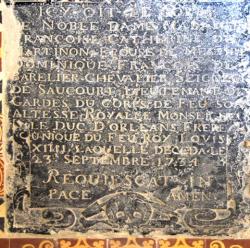 DE NOBLE DAME
FRANÇOISE CATHERINE DE
MARTINON EPOUSE DE MESSIRE
DOMINIQUE FRANÇOIS DE
BARELIER CHEVALIER SEIGNEUR
DE SAUCOURT LIEUTENANT
GARDES DU CORPS DE FEU SON
ALTESSE ROYALLE MONSEIGNEUR
LE DUC DORLEANS FRERE
UNIQUE DU FEU ROY LOUIS
XIIII LAQUELLE DECEDA LE
23 SEPTEMBRE
REQUIESCAT IN
PACE AMEN